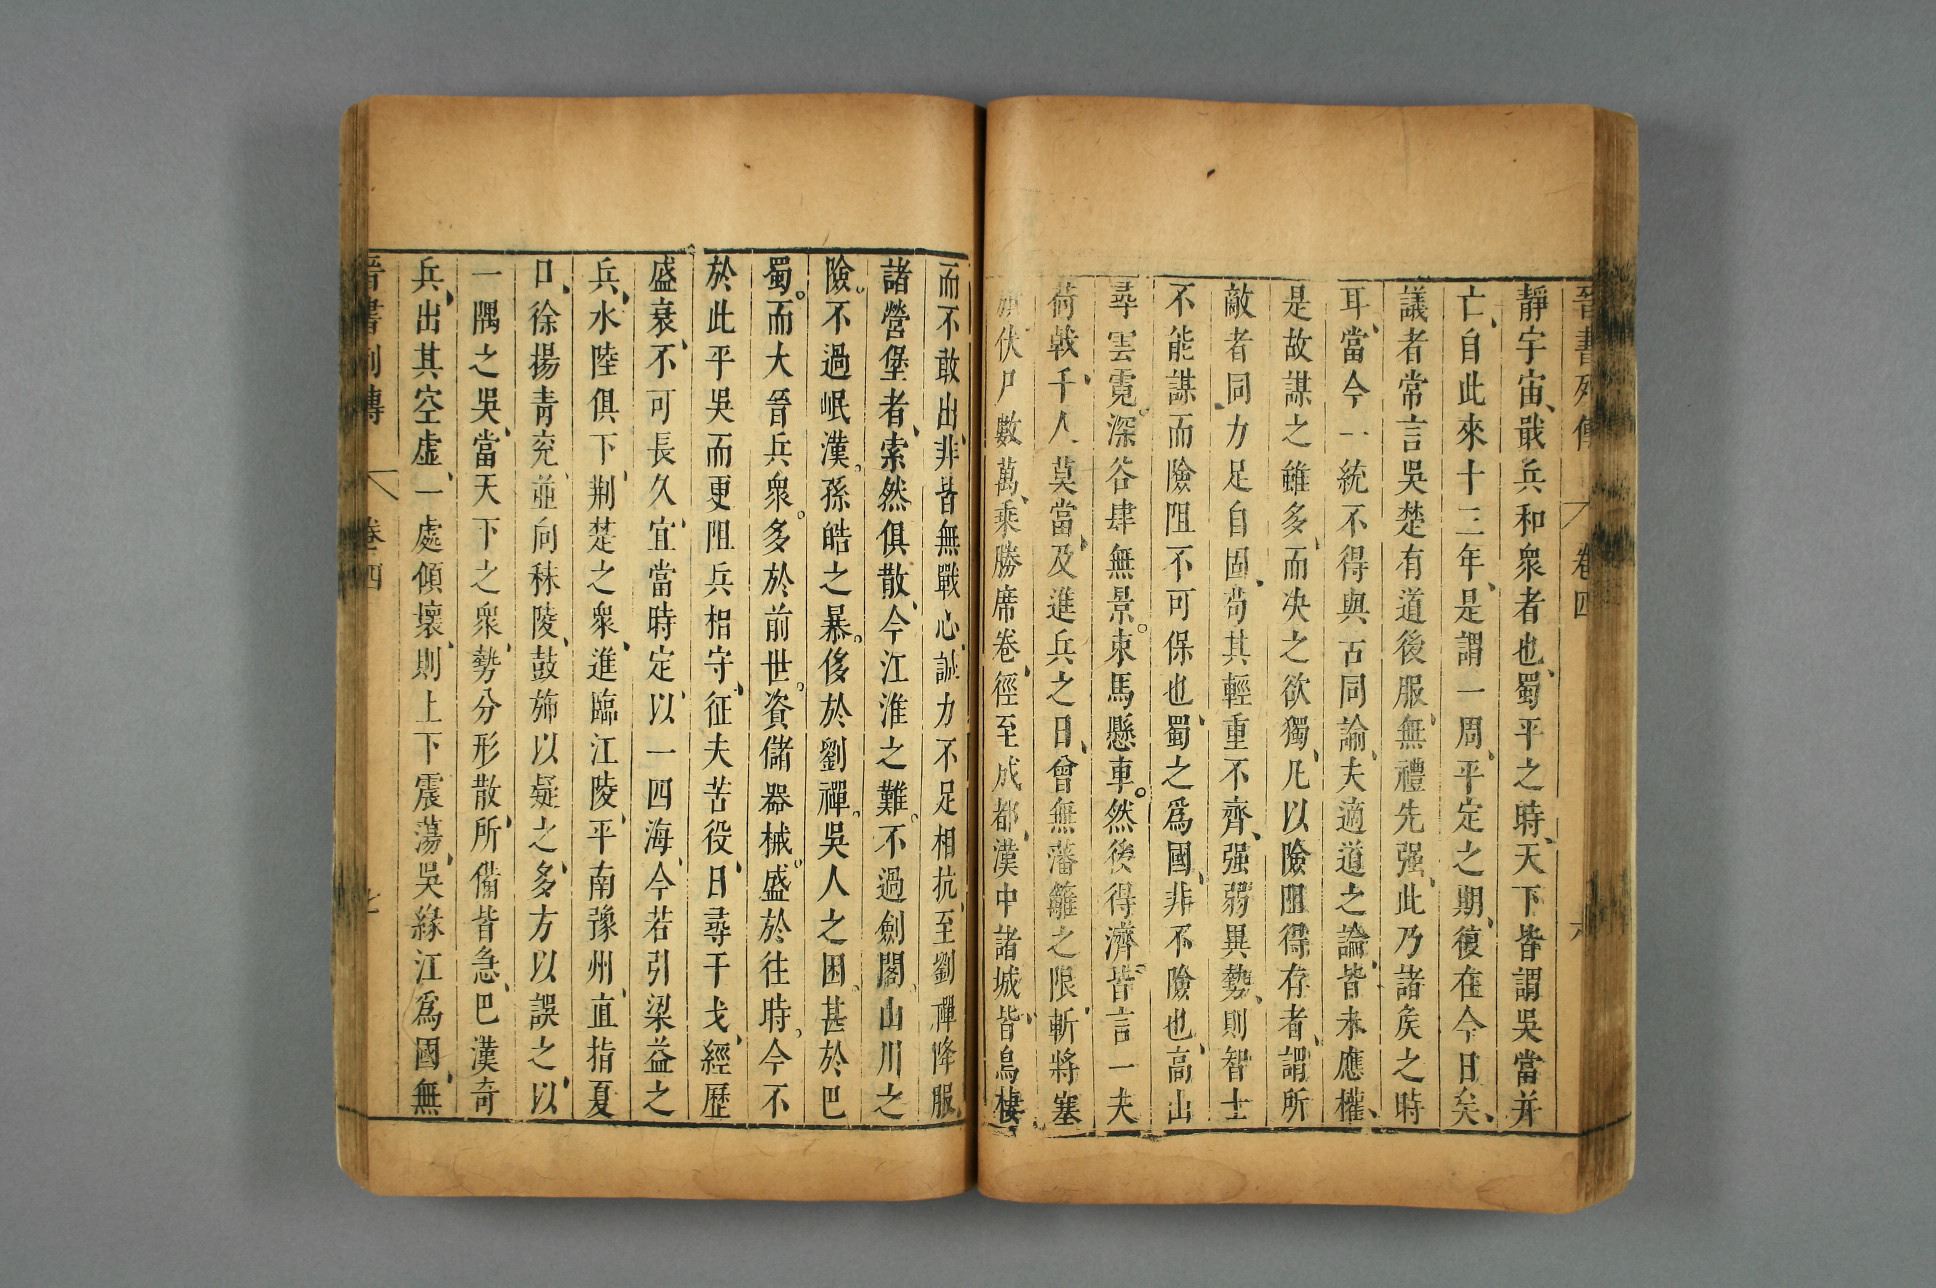 晉書列傳 卷四 六
靜宇宙、戢兵和衆者也、蜀平之時、天下皆謂吳當并
亡、自此來十三年、是謂一周、平定之期、復在今日矣、
議者常言吳楚有道後服、無禮先强、此乃諸矦之時
耳、當今一統不得與古同論、夫適道之論、皆未應權、
是故謀之雖多、而決之欲獨、凡以險阻得存者、謂所
敵者同、力足自固、苟其輕重不齊、强弱異勢、則智士
不能謀而險阻不可保也、蜀之爲國、非不險也、高山
尋雲霓。深谷肆無景。束馬懸車。然後得濟。皆言一夫
荷戟、千人莫當、及進兵之日、曾無藩籬之限、斬將搴
旗伏尸數萬、乘勝席卷、徑至成都、漢中諸城、皆鳥棲、
而不敢出、非皆無戰心、誠力不足相抗、至劉禪降服、
諸營堡者、索然俱散、今江淮之難。不過劍閣。山川之
險。不過岷漢。孫皓之暴。侈於劉禪。吳人之困。甚於巴
蜀。而大晉兵衆。多於前世。資儲器械。盛於往時。今不
於此平吳而更阻兵相守、征夫苦役、日尋干戈、經歷
盛衰、不可長久、宜當時定、以一四海、今若引梁益之
兵、水陸俱下、荆楚之衆、進臨江陵、平南豫州、直指夏
口、徐揚青兗、並向秣陵、鼓斾以疑之、多方以誤之、以
一隅之吳、當天下之衆、勢分形散、所備皆急、巴漢奇
兵、出其空虛、一處傾壞、則上下震蕩、吳緣江爲國、無
晉書列傳 卷四 七